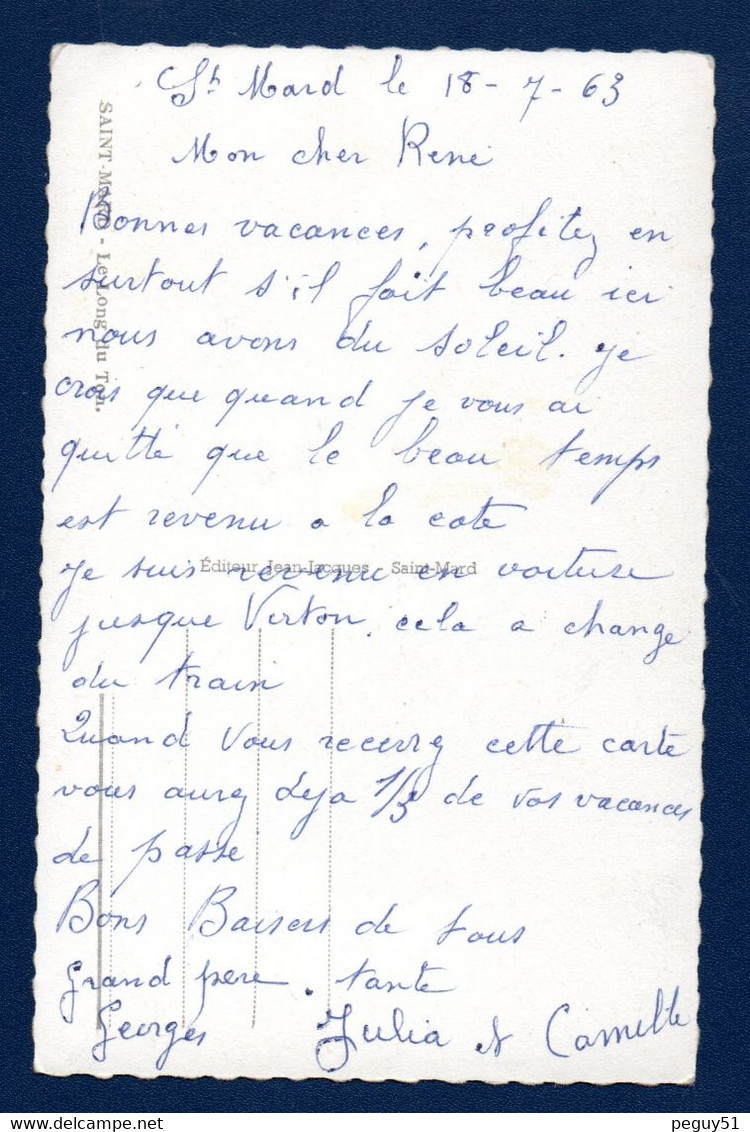 St Mard le 18-7-63
Mon cher René
Bonnes vacances, profitez en
surtout s'il fait beau ici
nous avons du soleil. Je
crois que quand je vous ai
quitté que le beau temps
est revenu a la cote
Je suis revenu en voiture
jusque Virton, cela a change
du train
Quand vous recevrez cette carte
vous aurez deja 1/3 de vos vacances
de passe
Bons Baisers de tous
Grand pere. tante
Georges Julia et Camille
SAINT-MARD - Le Long du Ton.
Éditeur Jean-Jacques - Saint-Mard
peguy51